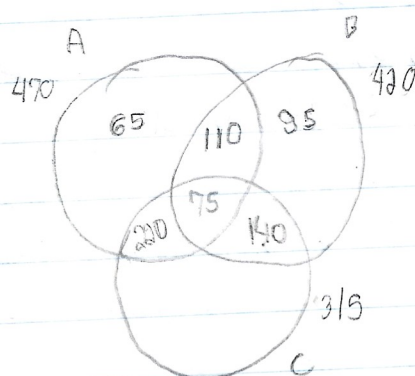 A
B
470
420
65
110
95
75
220
140
315
C